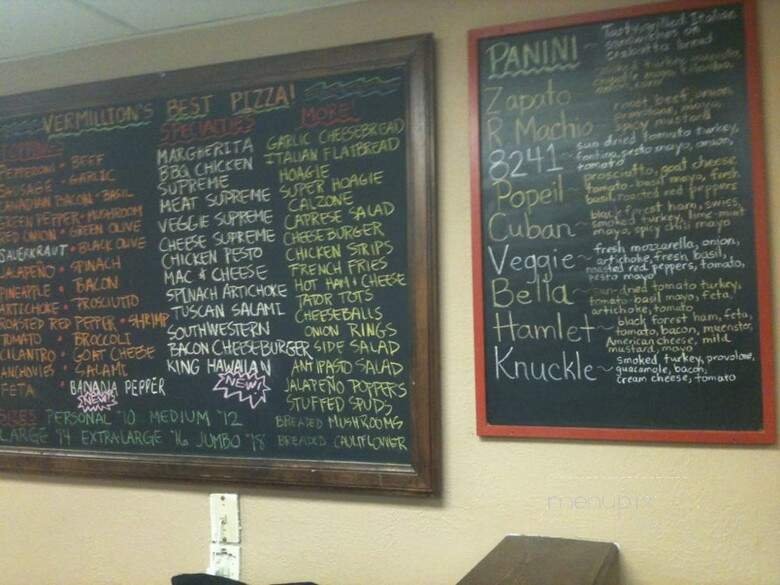 VERMILLION'S BEST PIZZA!
PEPPERONI • BEEF
SAUSAGE • GARLIC
CANADIAN BACON • BASIL
GREEN PEPPER • MUSHROOM
RED ONION • GREEN OLIVE
SAUERKRAUT • BLACK OLIVE
JALAPEÑO • SPINACH
PINEAPPLE • BACON
ARTICHOKE • PROSCIUTTO
ROASTED RED PEPPER • SHRIMP
TOMATO • BROCCOLI
CILANTRO • GOAT CHEESE
ANCHOVIES • SALAMI
FETA • BANANA PEPPER
NEW!
SPECIALTIES
MARGHERITA
BBQ CHICKEN
SUPREME
MEAT SUPREME
VEGGIE SUPREME
CHEESE SUPREME
CHICKEN PESTO
MAC & CHEESE
SPINACH ARTICHOKE
TUSCAN SALAMI
SOUTHWESTERN
BACON CHEESEBURGER
KING HAWAIIAN
NEW!
MORE!
GARLIC CHEESEBREAD
ITALIAN FLATBREAD
HOAGIE
SUPER HOAGIE
CALZONE
CAPRESE SALAD
CHEESEBURGER
CHICKEN STRIPS
FRENCH FRIES
HOT HAM & CHEESE
TATOR TOTS
CHEESEBALLS
ONION RINGS
SIDE SALAD
ANTIPASTO SALAD
JALAPEÑO POPPERS
STUFFED SPUDS
BREADED MUSHROOMS
BREADED CAULIFLOWER
SIZES PERSONAL "10 MEDIUM "12
LARGE "14 EXTRA LARGE "16 JUMBO "18
PANINI ~ Tasty grilled Italian
sandwiches on
ciabatta bread
Zapato
R Machio ~ roast beef, onion,
mayo,
spicy mustard
8241 ~ sun dried tomato turkey,
fontina, pesto mayo, onion,
tomato
Popeil ~ prosciutto, goat cheese
tomato-basil mayo, fresh
basil, roasted red peppers
Cuban ~ black forest ham, swiss,
smoked turkey, lime-mint
mayo, spicy chili mayo
Veggie ~ fresh mozzarella, onion,
artichoke, fresh basil,
roasted red peppers, tomato,
pesto mayo
Bella ~ sun-dried tomato turkey,
tomato-basil mayo, feta,
artichoke, tomato
Hamlet ~ black forest ham, feta,
tomato, bacon, muenster,
American cheese, mild
mustard, mayo
Knuckle ~ smoked turkey, provolone,
guacamole, bacon,
cream cheese, tomato
menupix